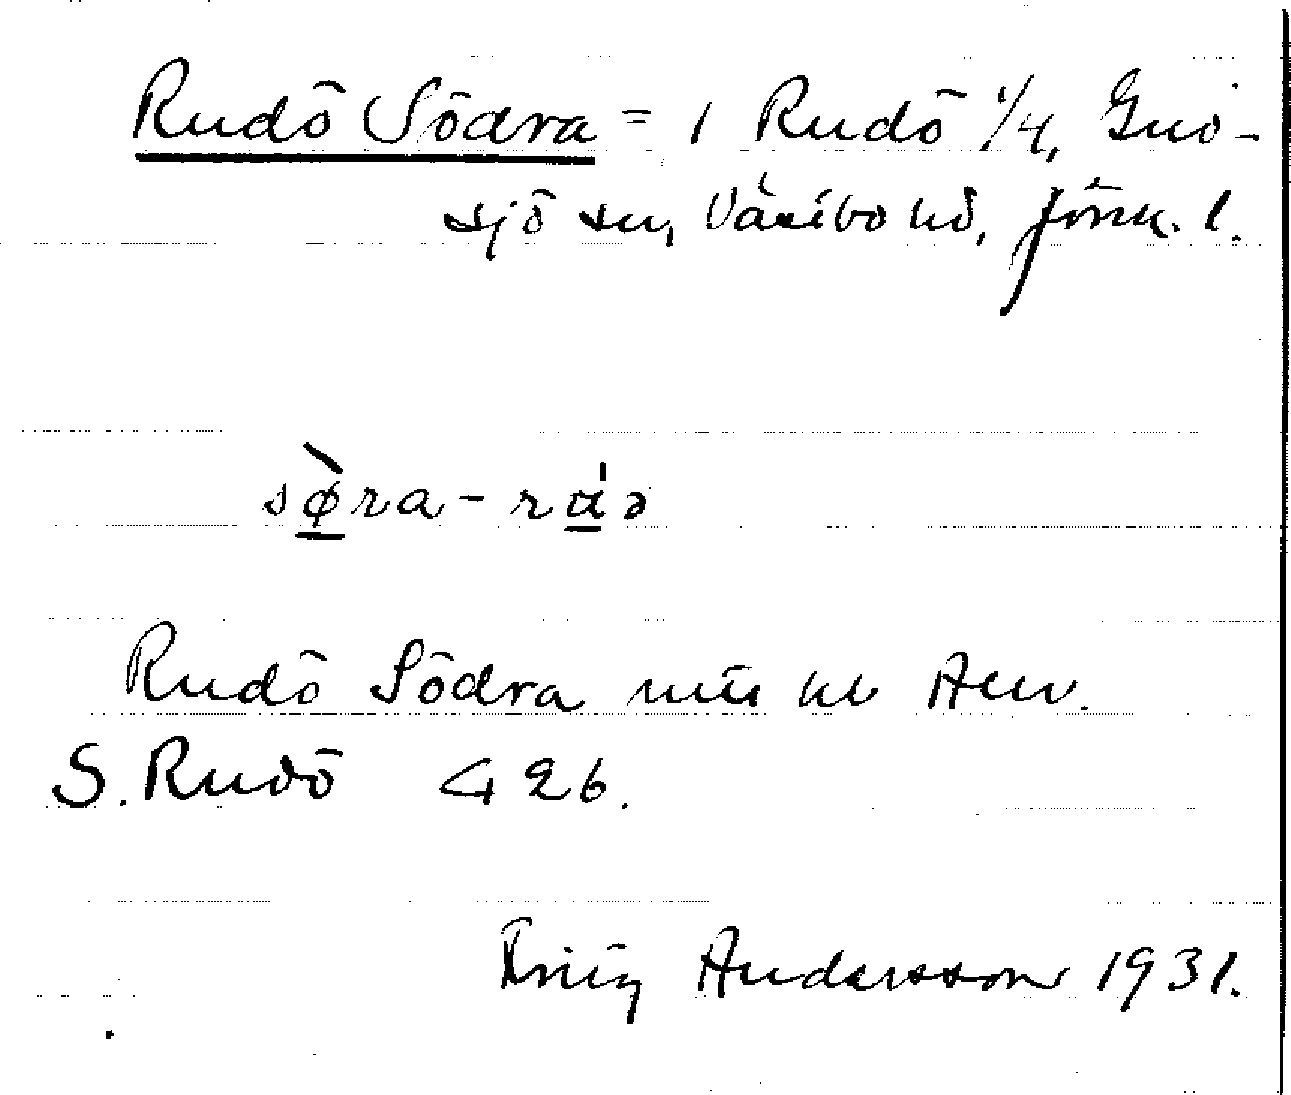 Rudö Södra = 1 Rudö 1/4, Gnö-
sjö sn, Västbo hd, Jönk. l.
sø̀ra-rɑ́ə
Rudö Södra
S. Rudö 426.
Andersson 1931.